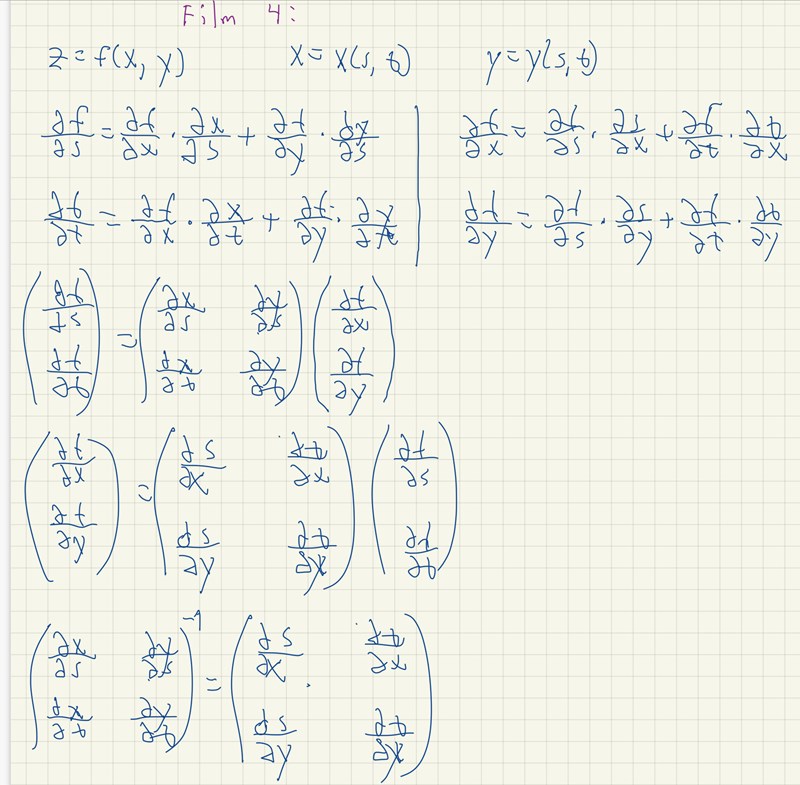 Film 4:
z = f(x, y) x = x(s, t) y = y(s, t)
∂f/∂s = ∂f/∂x · ∂x/∂s + ∂f/∂y · ∂y/∂s | ∂f/∂x = ∂f/∂s · ∂s/∂x + ∂f/∂t · ∂t/∂x
∂f/∂t = ∂f/∂x · ∂x/∂t + ∂f/∂y · ∂y/∂t | ∂f/∂y = ∂f/∂s · ∂s/∂y + ∂f/∂t · ∂t/∂y
(∂f/∂s ; ∂f/∂t) = (∂x/∂s ∂y/∂s ; ∂x/∂t ∂y/∂t) (∂f/∂x ; ∂f/∂y)
(∂f/∂x ; ∂f/∂y) = (∂s/∂x ∂t/∂x ; ∂s/∂y ∂t/∂y) (∂f/∂s ; ∂f/∂t)
(∂x/∂s ∂y/∂s ; ∂x/∂t ∂y/∂t)⁻¹ = (∂s/∂x ∂t/∂x ; ∂s/∂y ∂t/∂y)